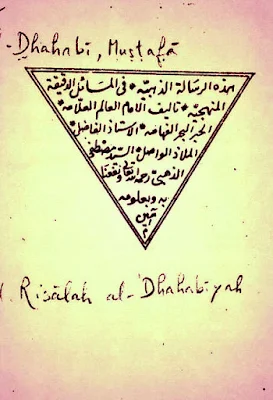 -Dhahabī, Muṣṭafā
هذه الرسالة الذهبية * فى المسائل الدقيقة
المنهجية * تأليف الامام العالم العلامة *
الحبر البحر الفهامه * الاستاذ الفاضل *
الملاذ الواصل * السيد مصطفى
الذهبى رحمه الله تعالى ونفعنا
به وبعلومه
آمين
م
Risālah al-Dhahabīyah